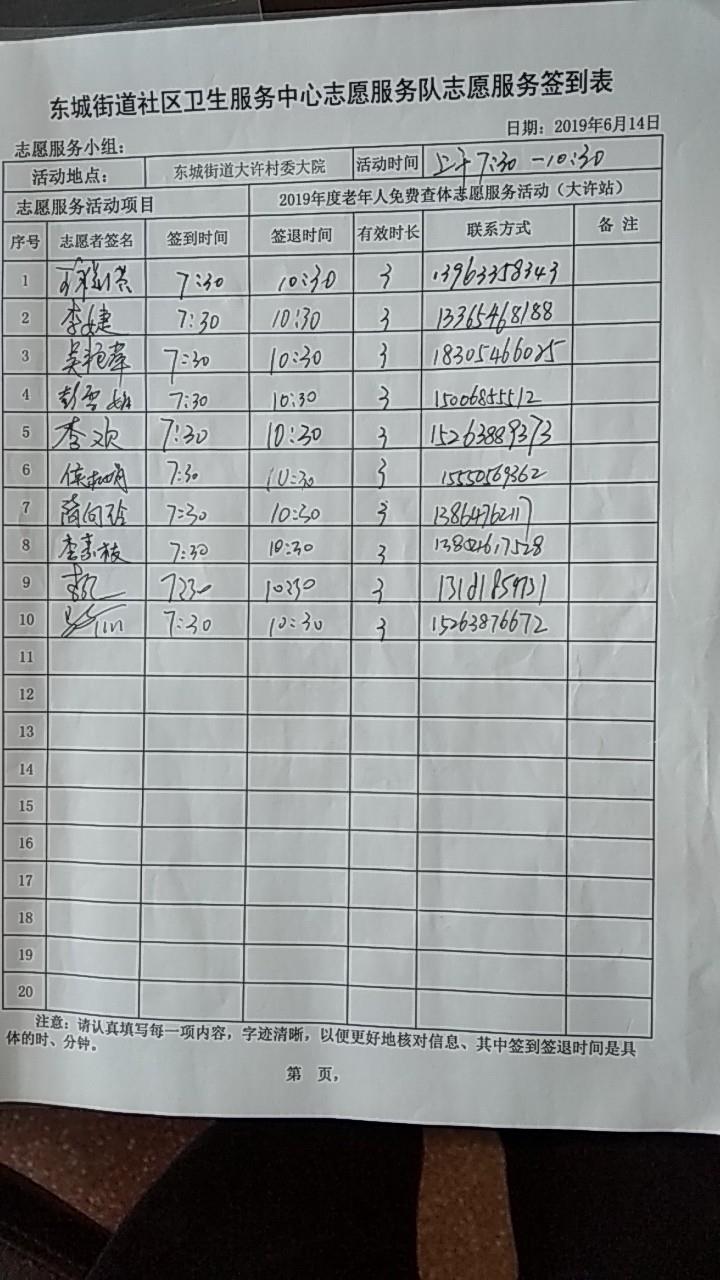 东城街道社区卫生服务中心志愿服务队志愿服务签到表
日期：2019年6月14日
志愿服务小组：
活动地点： 东城街道大许村委大院 活动时间 上午7:30—10:30
志愿服务活动项目 2019年度老年人免费查体志愿服务活动（大许站）
序号 志愿者签名 签到时间 签退时间 有效时长 联系方式 备注
1 7:30 10:30 3 13963358343
2 李婕 7:30 10:30 3 13365468188
3 吴艳苹 7:30 10:30 3 18305466025
4 彭雪娟 7:30 10:30 3 15006855512
5 李欢 7:30 10:30 3 15263889373
6 7:30 10:30 3 15550569362
7 7:30 10:30 3 13864762117
8 李素枝 7:30 10:30 3
9 7:30 10:30 3
10 7:30 10:30 3 15263876672
11
12
13
14
15
16
17
18
19
20
注意：请认真填写每一项内容，字迹清晰，以便更好地核对信息、其中签到签退时间是具
体的时、分钟。
第 页，